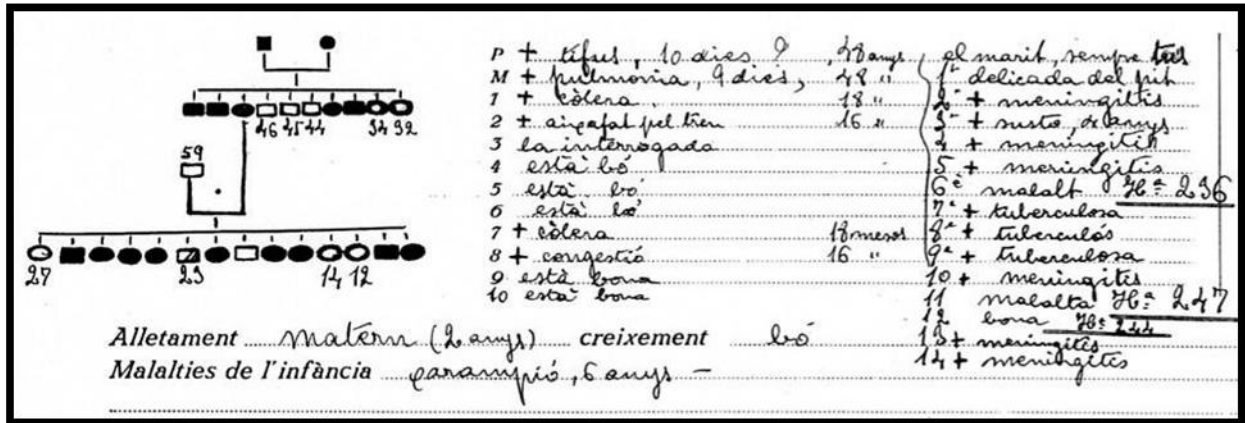 46 45 44 34 32
59
27 23 14 12
P + tifus, 10 dies ?, 48 anys
M + pulmonia, 9 dies, 48 "
1 + còlera, 18 "
2 + aixafat pel tren 16 "
3 la interrogada
4 està bó
5 està bó
6 està bó
7 + còlera 18 mesos
8 + congestió 16 "
9 està bona
10 està bona
el marit, sempre tus
1ª delicada del pit
2ª + meningitis
3ª + susto, 2 anys
4 + meningitis
5 + meningitis
6è malalt Hª 236
7ª + tuberculosa
8ª + tuberculós
9ª + tuberculosa
10 + meningitis
11 malalta Hª 247
12 bona Hª 244
13 + meningitis
14 + meningitis
Alletament matern (2 anys) creixement bó
Malalties de l'infància xarampió, 6 anys –